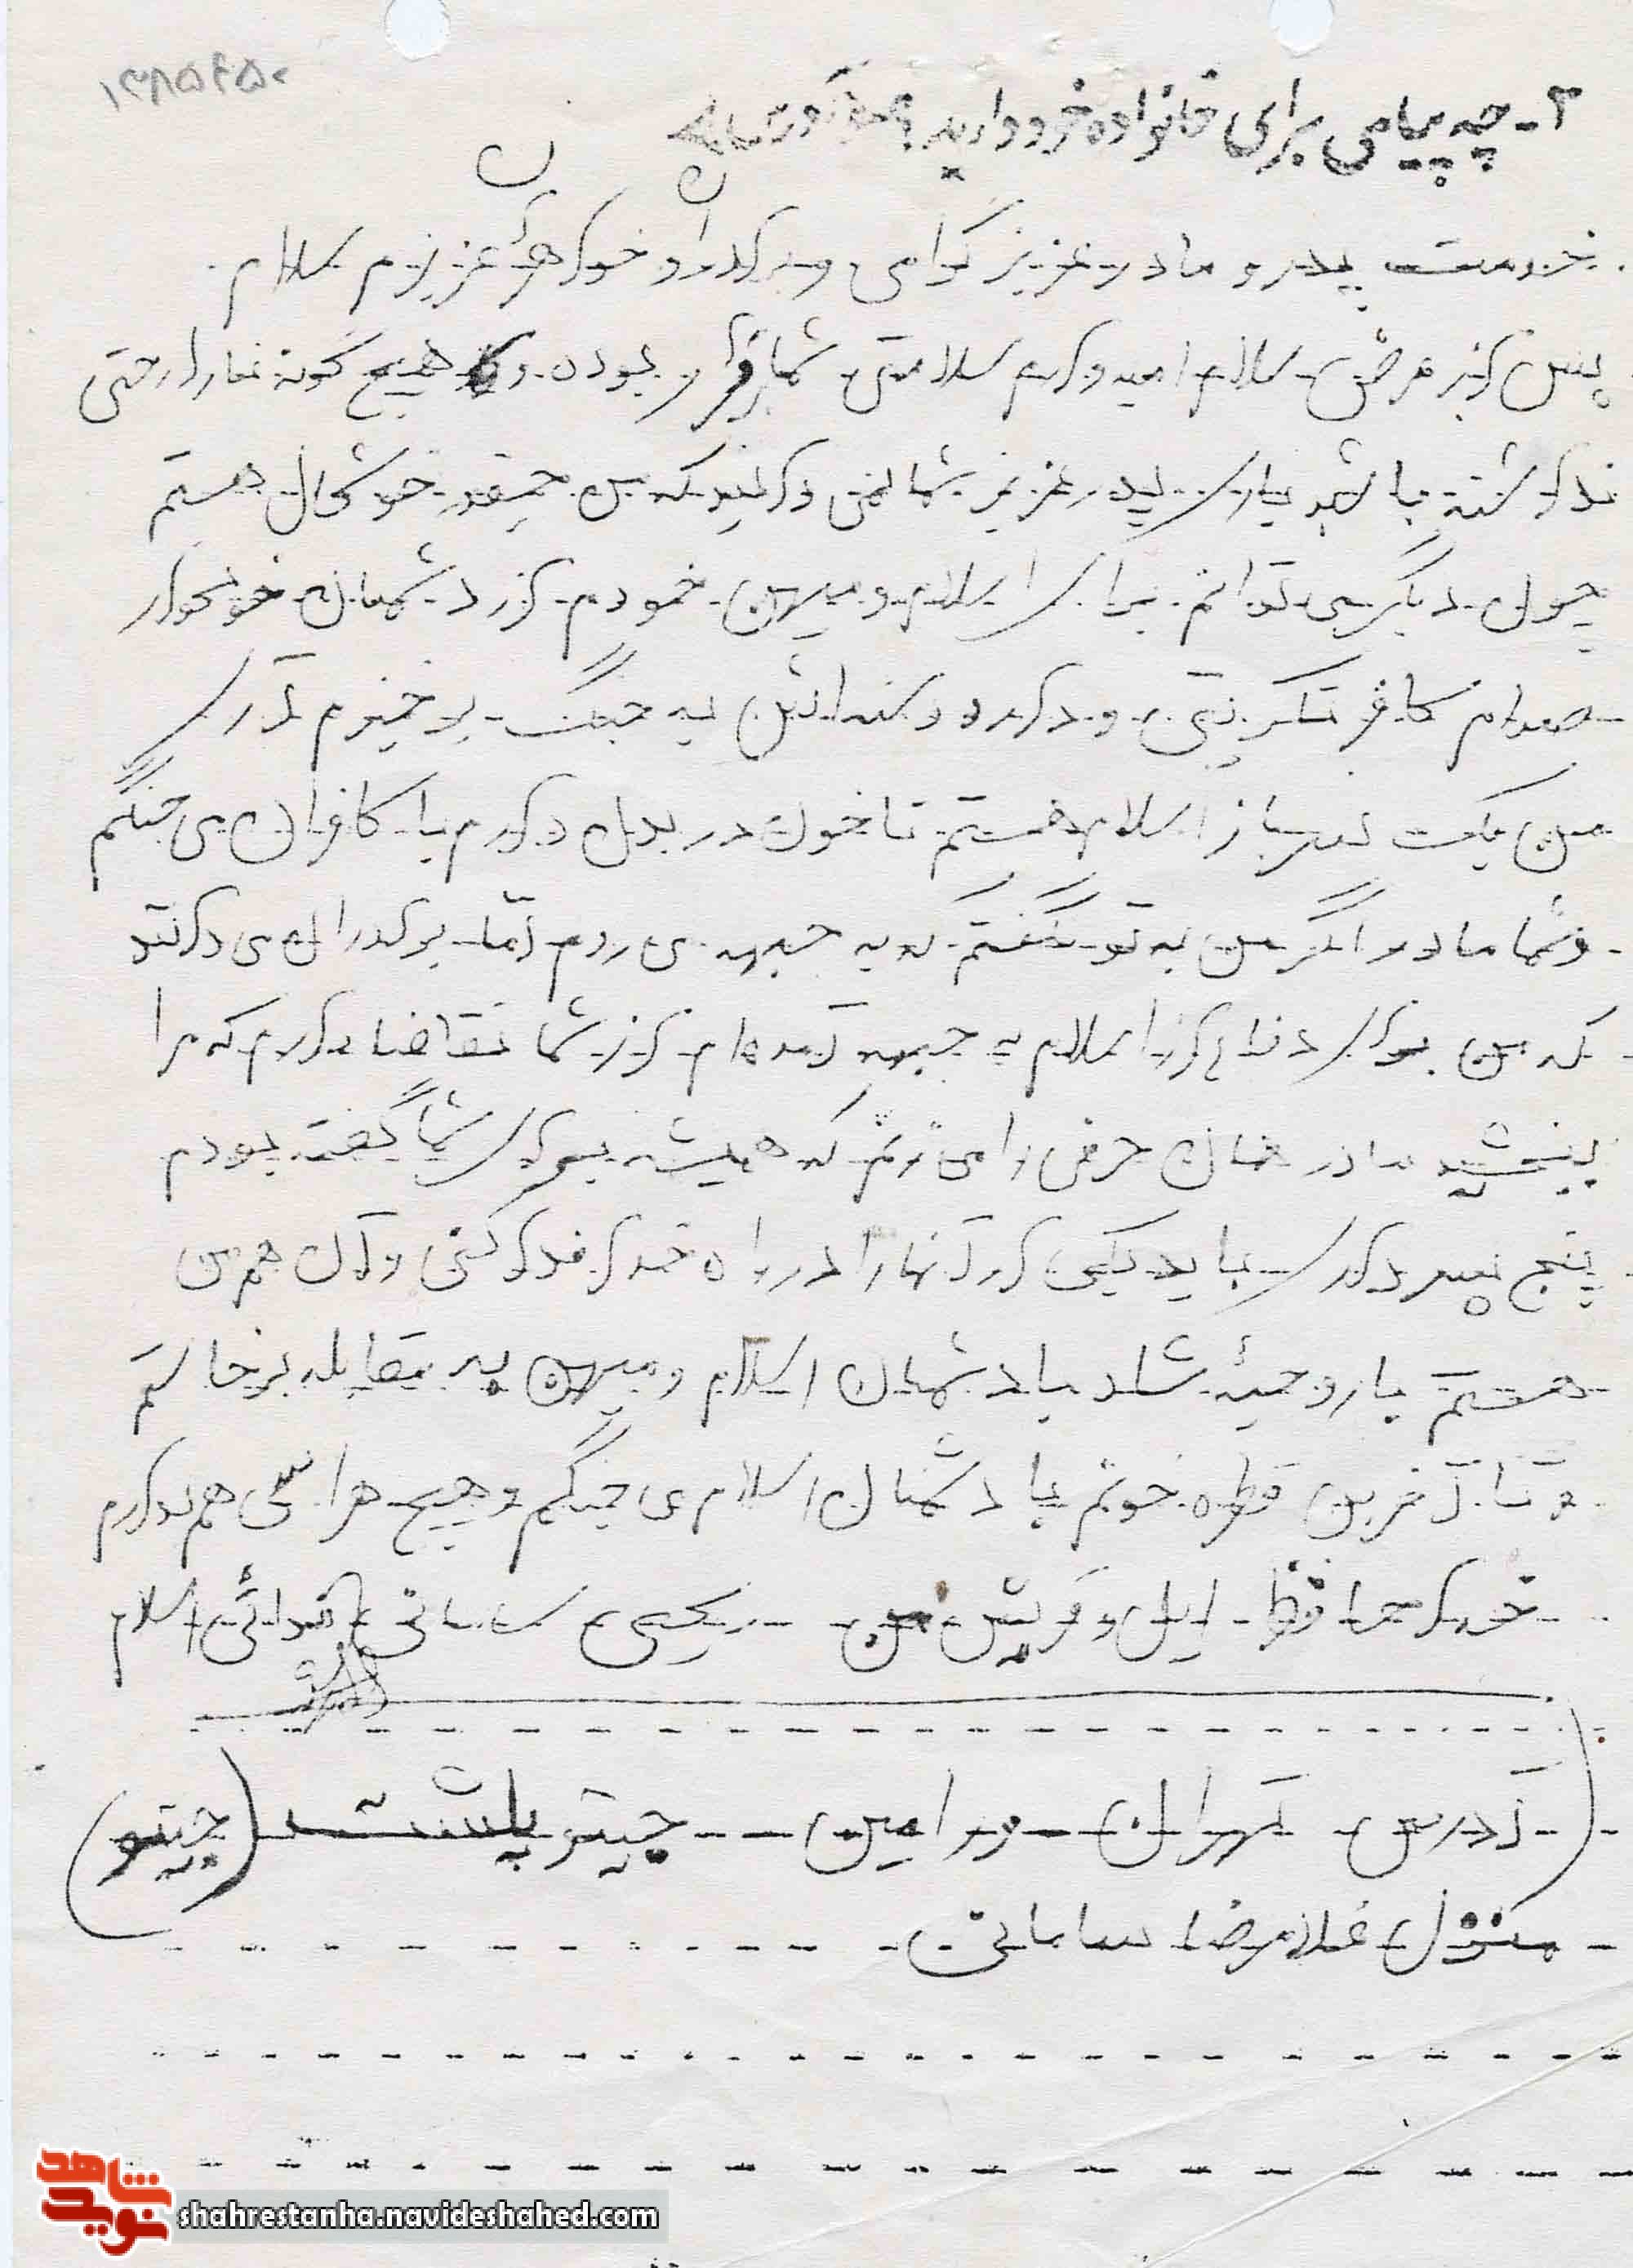 ۱۳۸۵۴۵۰
۳- چه پیامی برای خانواده خود دارید؟
خدمت پدر و مادر عزیز گرامی و برادران و خواهران عزیزم سلام.
پس از عرض سلام امیدوارم سلامتی شما برقرار بوده و هیچ گونه ناراحتی
نداشته باشید باری پدر عزیز شما نمی دانید که من چقدر خوشحال هستم
چون دیگر می توانم برای اسلام و میهن خودم از دشمنان خونخوار
صدام کافر تکریتی و دارودسته اش به جنگ برخیزم آری
من یک سرباز اسلام هستم تا خون در بدن دارم با کافران می جنگم
و شما مادر اگر من به تو نگفتم که به جبهه می روم اما برادران می دانند
که من برای دفاع از اسلام به جبهه آمده ام از شما تقاضا دارم که مرا
ببخشید مادر همان حرفی را می زنم که همیشه برای شما گفته بودم
پنج پسر داری باید یکی از آنها را در راه خدا فدا کنی و آن هم من
هستم با روحیه شاد با دشمنان اسلام و میهن به مقابله برخاستم
و تا آخرین قطره خونم با دشمنان اسلام می جنگم و هیچ هراسی هم ندارم
خدا حافظ ایل و قویش من یحیی سامانی فدائی اسلام
(آدرس تهران - ورامین - - چیتو پلشت (چیتو)
منزل غلامرضا سامانی
نوید شاهد
shahrestanha.navideshahed.com